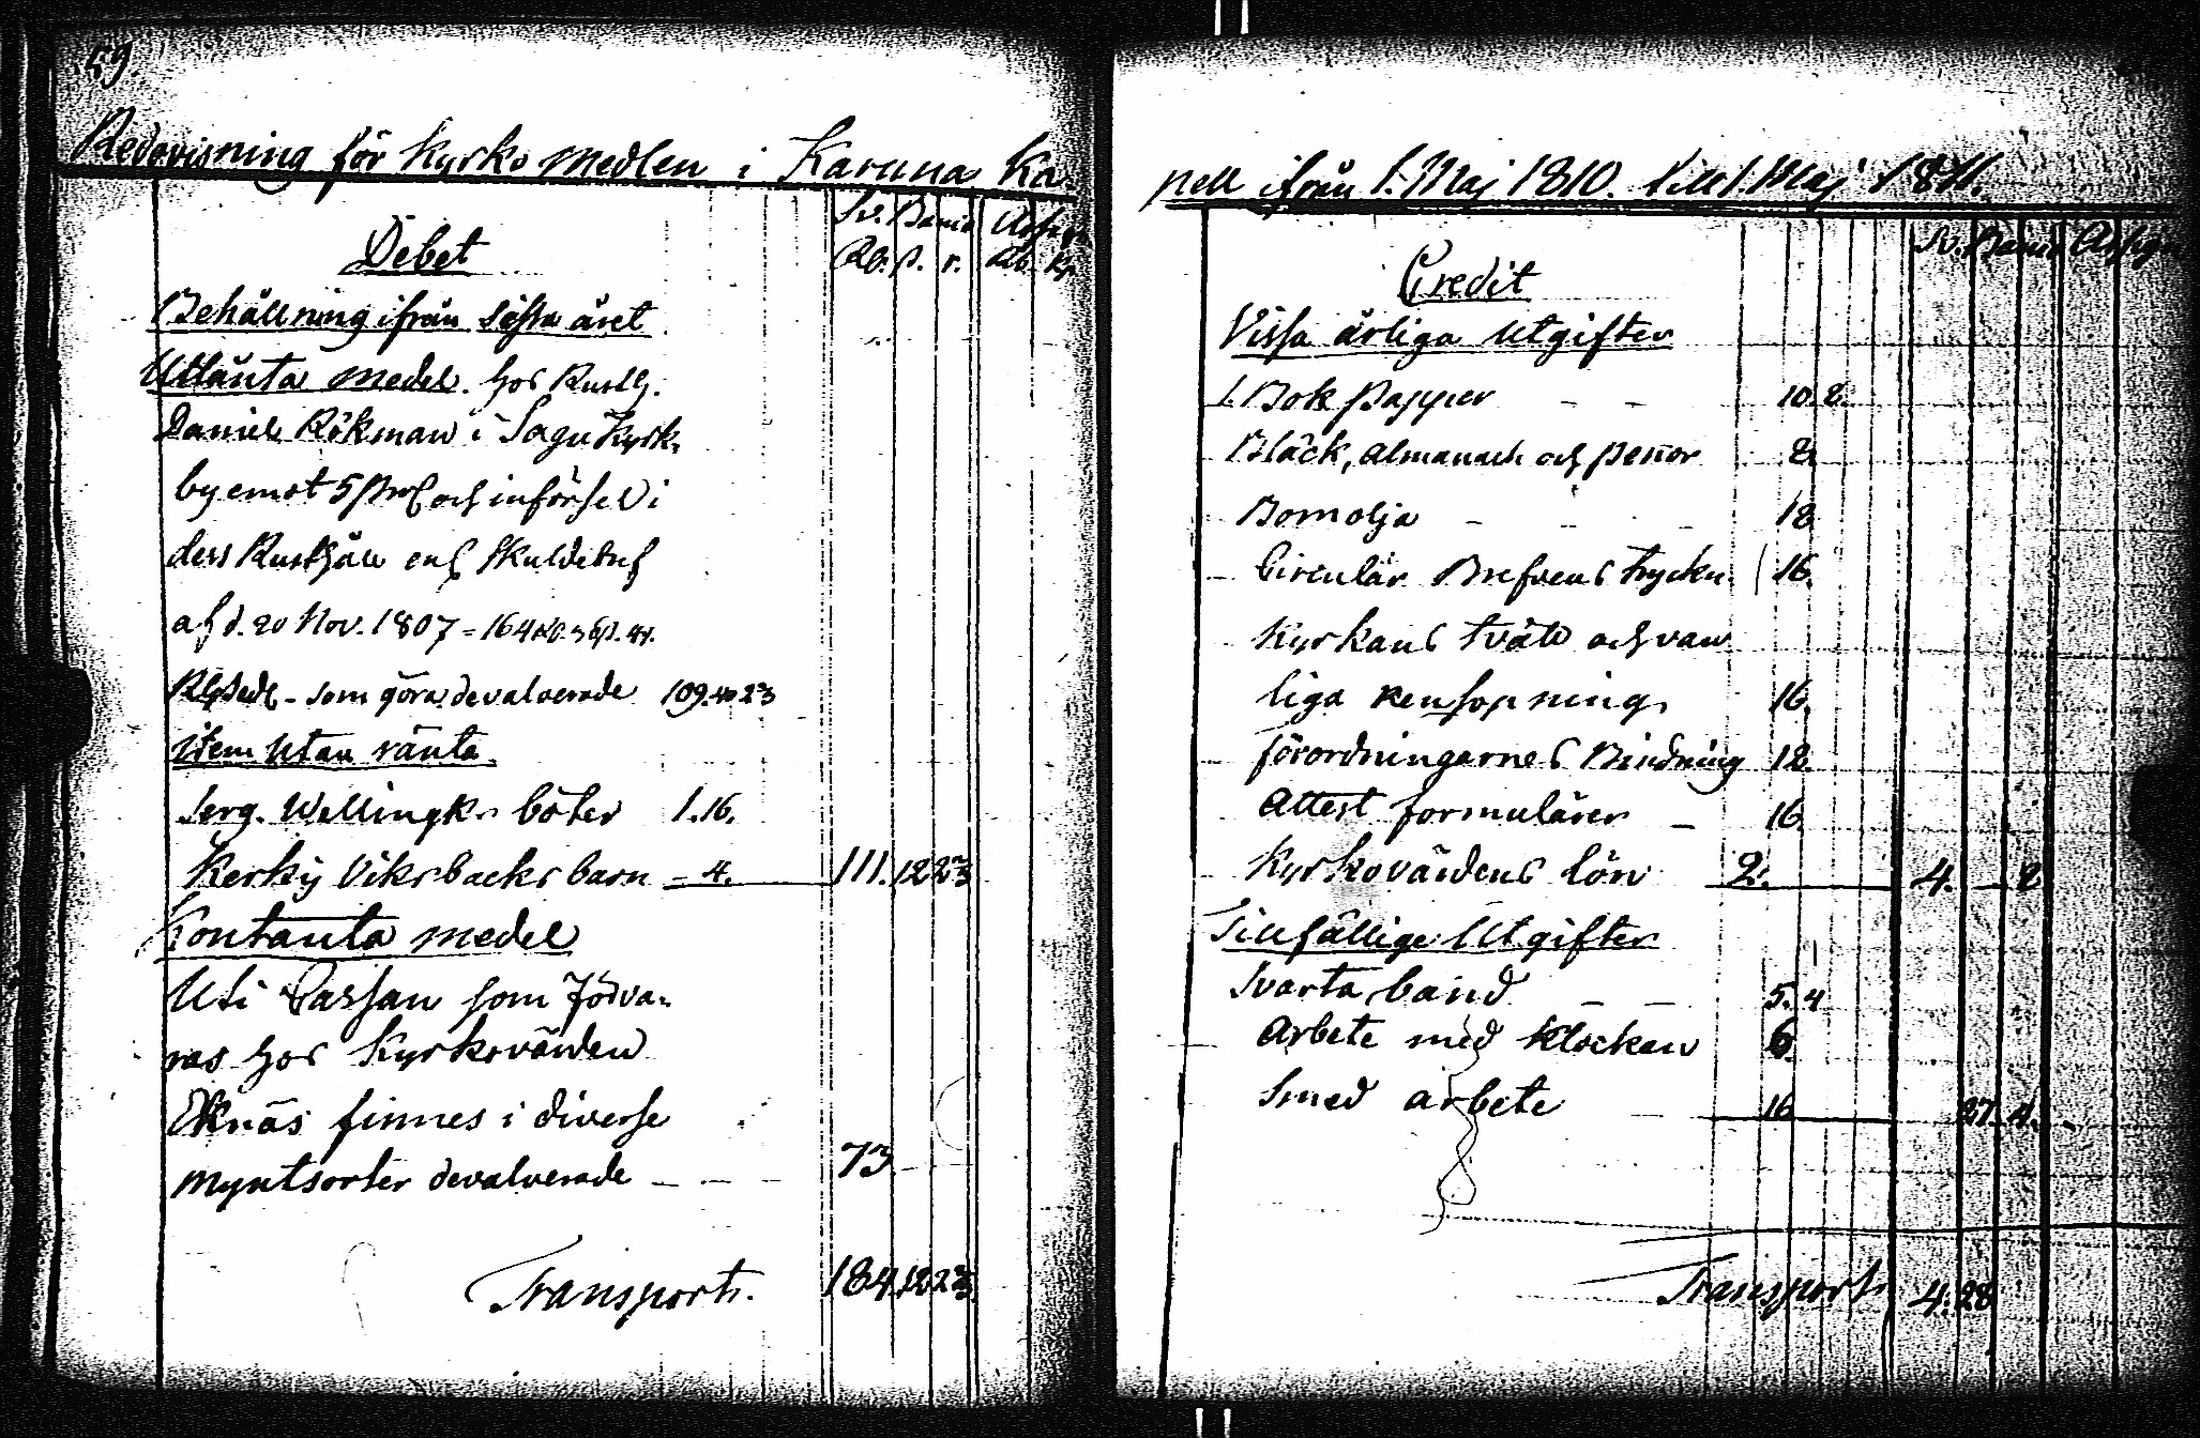 59.
Redovisning för Kyrko Medlen i Karuna Ka
Sv. Banco Assign
Debet
Rd. ß. r. Rb. Kp.
Behållning ifrån sista året
Utlånta medel. hos Rusth.
Daniel Rökman i Sagu Kyrk.
by emot 5 Proc och införsel i
dess Rusthåll enl. Skuldebref
af d. 20 Nov. 1807 = 164 RD. 36 ß. 4 r.
RGSedl - som göra devalverade 109. 40 2 3
item utan ränta.
Serg. Wellingks böter 1. 16.
Kerky Viksbacks barn - 4. 111. 12 2 3
Kontanta medel
Uti Cassan som förva-
ras hos Kyrkovärden
Eknäs finnes i diverse
myntsorter devalverade - - - 73
Transport. 184. 12 2 3
pell ifrån 1. Maj 1810. till 1. Maj 1811.
Sv. Banco Assign
Credit
Vissa årliga Utgifter
1. Bok Papper - - 10. 8.
Bläck, almanach och Pennor 8.
Bomolja - - - - 18
Circulär Brefvens tryckn. 16.
Kyrkans tvätt och van
liga rensopning 16.
förordningarnes Bindning 12.
Attest formulärer - 16.
Kyrkovärdens lön 2. 4. - 8
Tillfällige Utgifter
Svarta band - - 5. 4
Arbete med Klockan 6.
Smed arbete - 16 27. 4.
Transport 4. 28